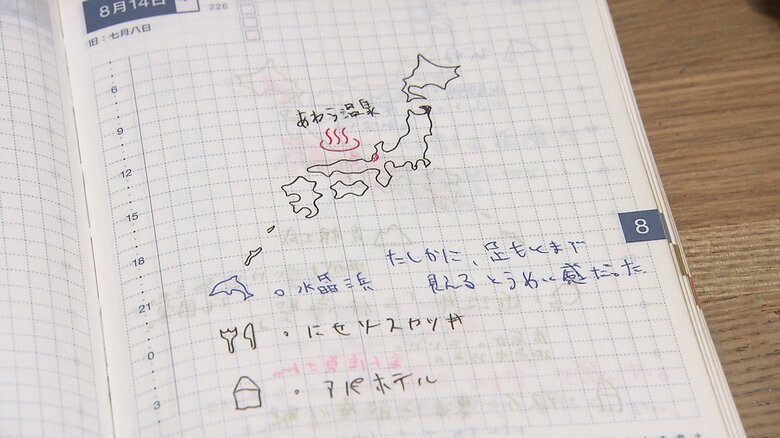 8月14日
226
旧:七月八日
6
9
12
15
18
21
0
3
8
あわら温泉
たしかに、足もとまで
・水晶浜 見えるとうめい感だった
・ソースカツ丼
・アパホテル